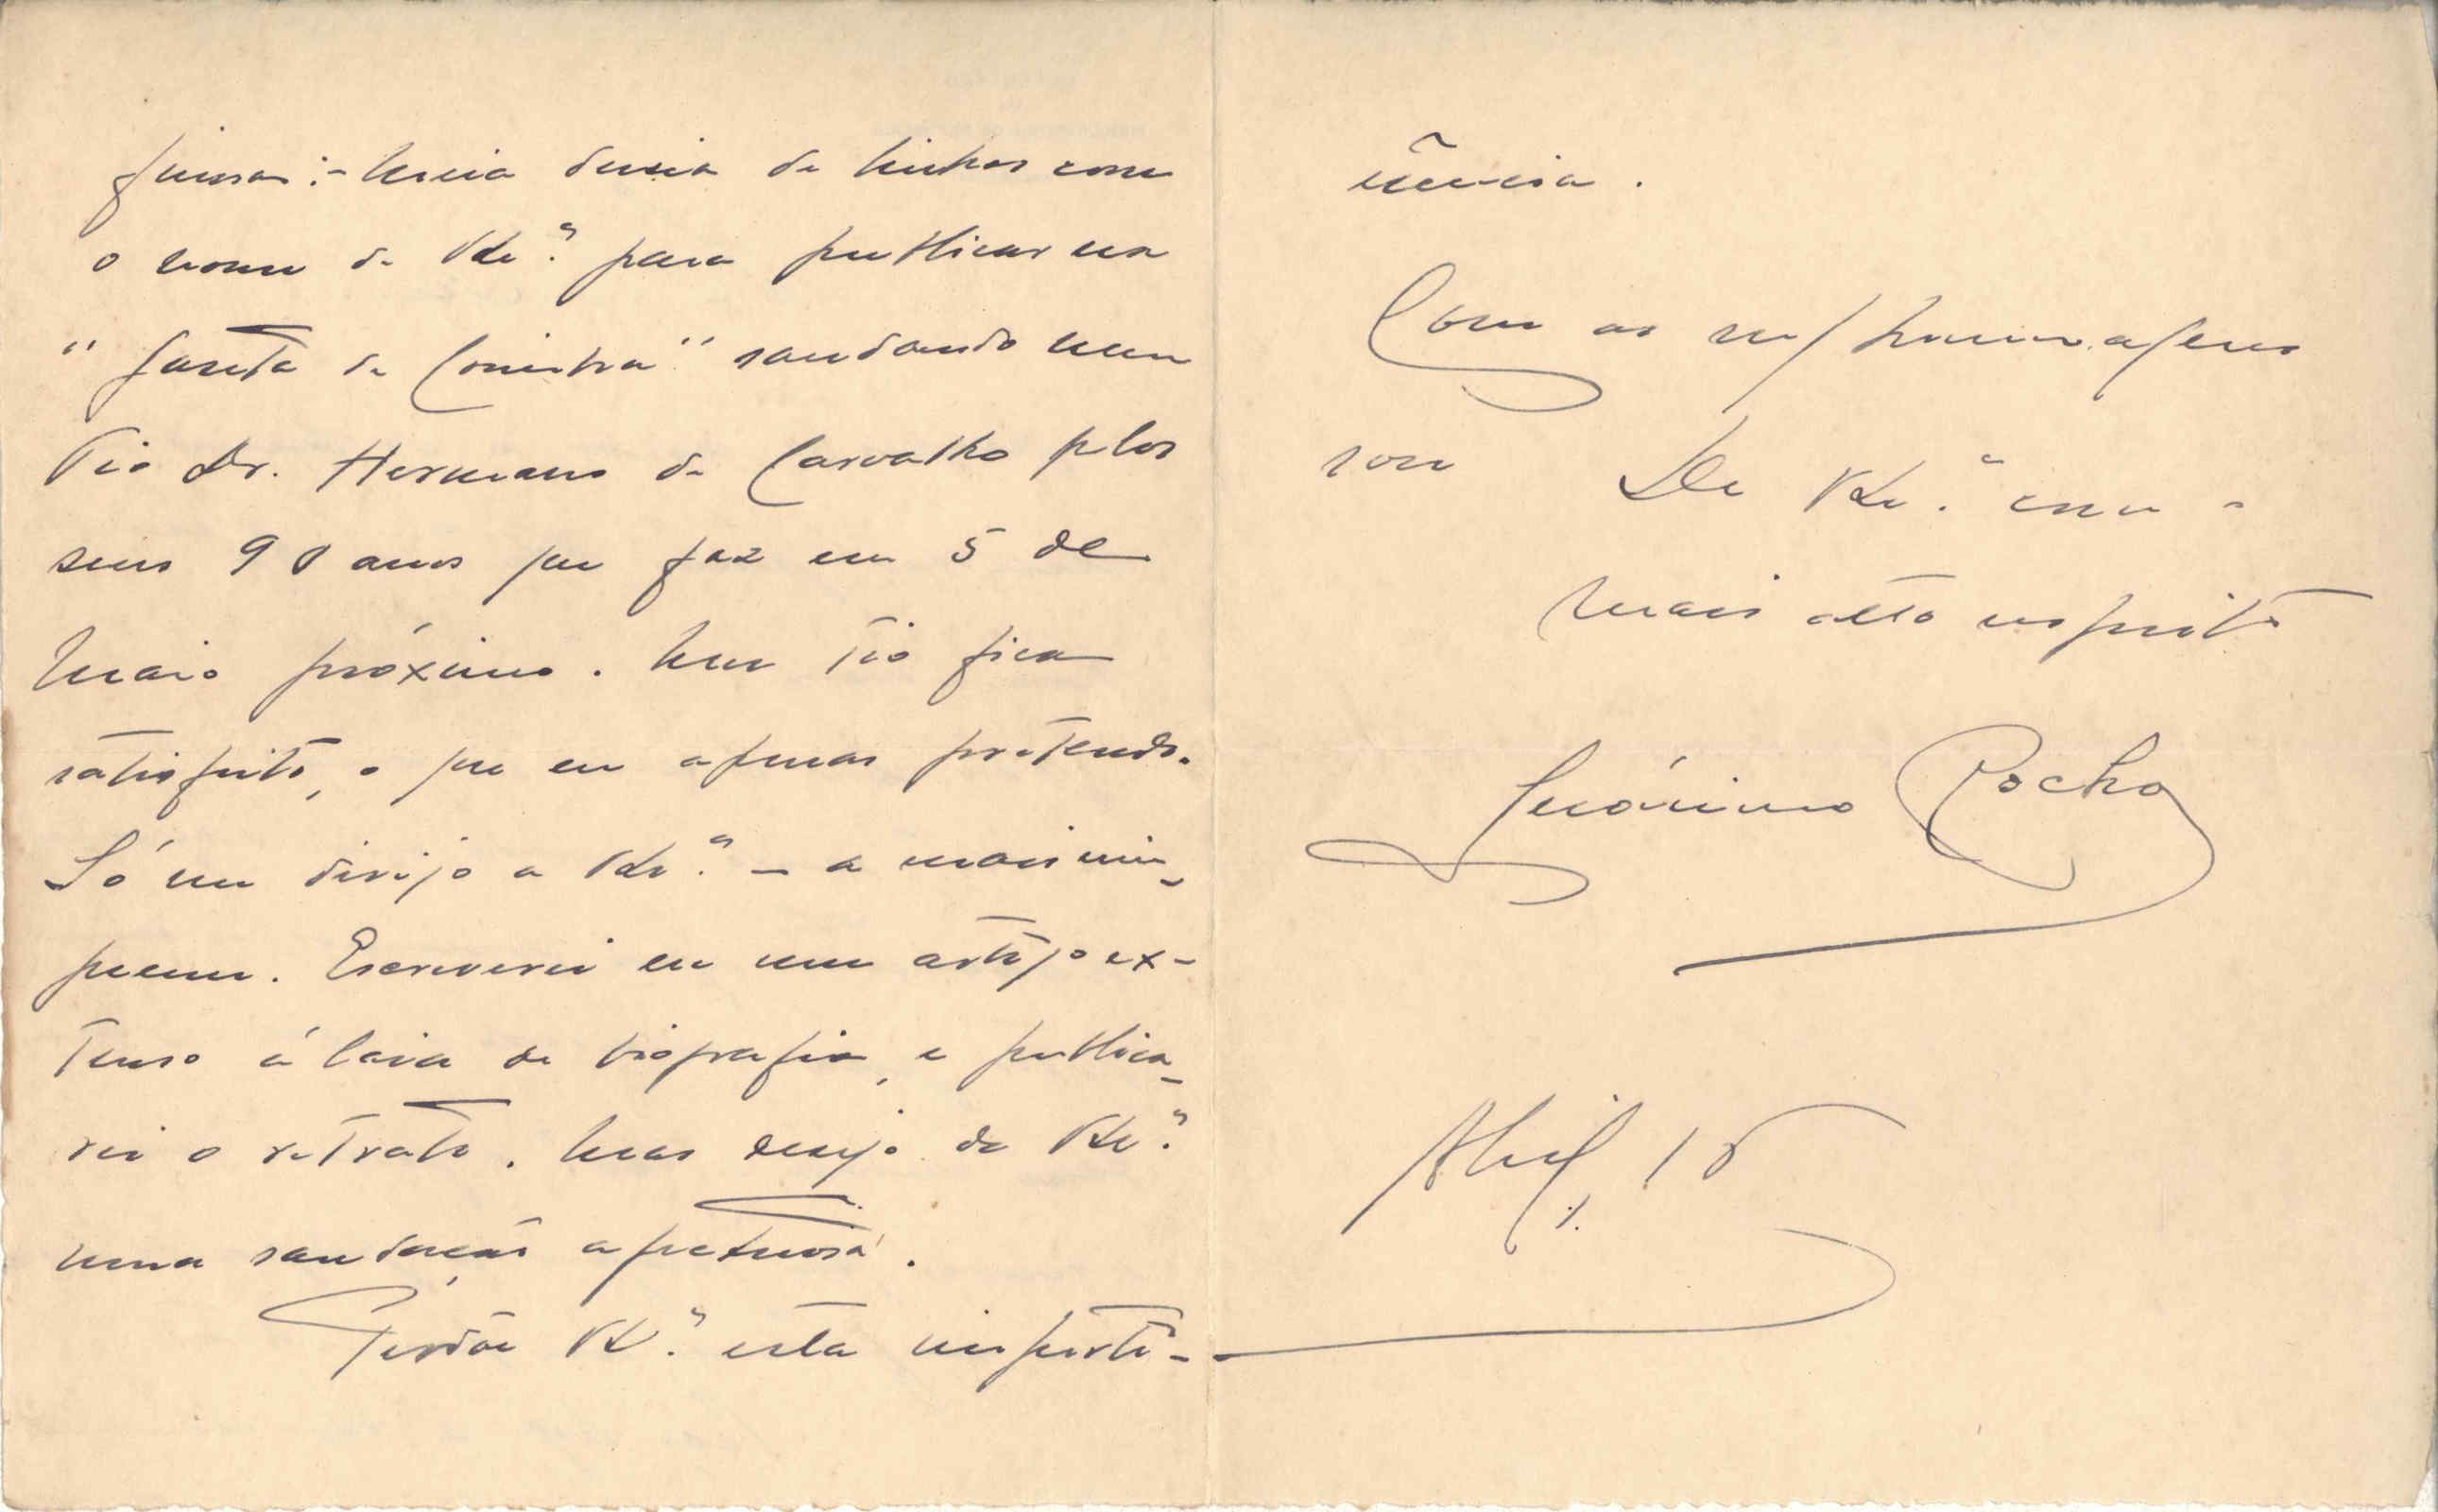 fineza:- Meia duzia de linhas com
o nome de V. Ex.ª para publicar na
"Gazeta de Coimbra" saudando meu
Tio Dr. Hermano de Carvalho pelos
seus 90 anos que faz em 5 de
Maio próximo. Meu Tio fica
satisfeito, o que eu apenas pretendo.
Só me dirijo a V. Ex.ª – a mais nin-
guem. Escreverei eu um artigo ex-
tenso á laia de biografia, e publica-
rei o retrato. Mas desejo de V. Ex.ª
uma saudação afectuosa.
Perdõe V. Ex.ª esta imperti-
nência.
Com as m/ homenagens
sou De V. Ex.ª com o
mais alto respeito
Jerónimo Rocha
Abril, 18